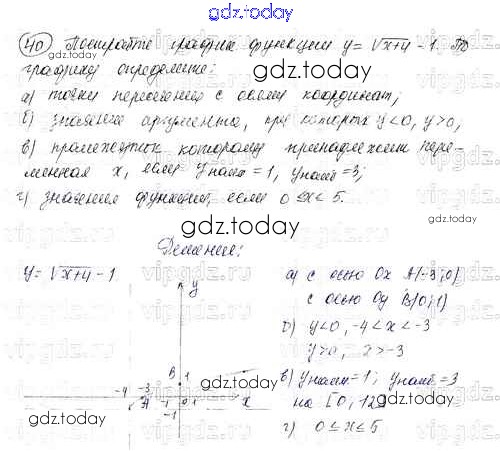 gdz.today
40 Постройте график функции y = √x+4 - 1. По
графику определите:
gdz.today
а) точки пересечения с осями координат;
б) значения аргумента, при которых y<0, y>0;
в) промежуток, которому принадлежит пере-
менная x, если yнаим = 1, yнаиб = 3;
г) значения функции, если 0 ≤ x ≤ 5.
gdz.today
Решение:
y = √x+4 - 1
y
а) с осью Ox A(-3;0)
с осью Oy B(0;1)
б) y<0, -4<x<-3
y>0, x>-3
B 1
-4 -3 A -1 0 1 x
-1
в) yнаим = 1; yнаиб = 3
на [0, 12]
г) 0≤x≤5
gdz.today
gdz.today